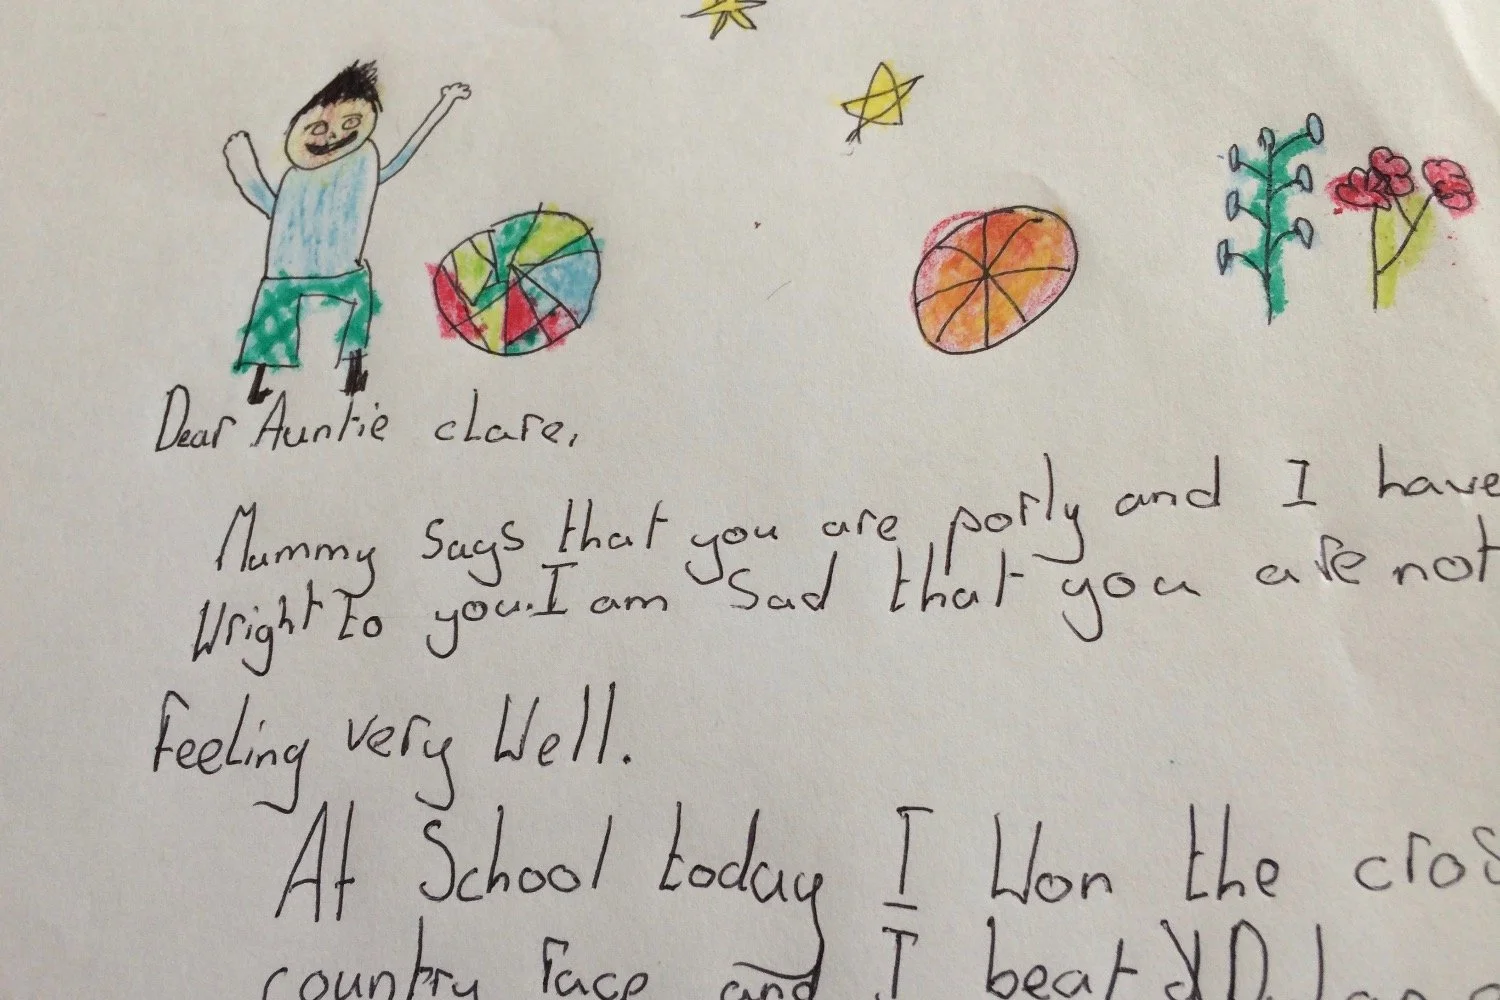 Dear Auntie clare,
Mummy says that you are porly and I have
Wright to you. I am Sad that you are not
Feeling very Well.
At School today I Won the cros
country race and I beat